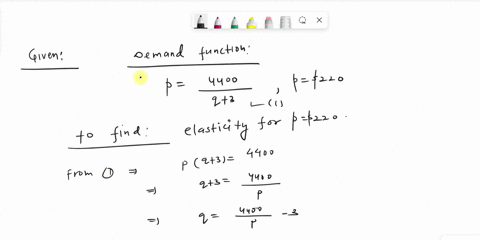 Given: Demand function:
p = 4400 / q+3 , p = $220
(1)
to find: elasticity for p = $220.
From ① ⇒ p (q+3) = 4400
⇒ q+3 = 4400 / p
⇒ q = 4400 / p - 3